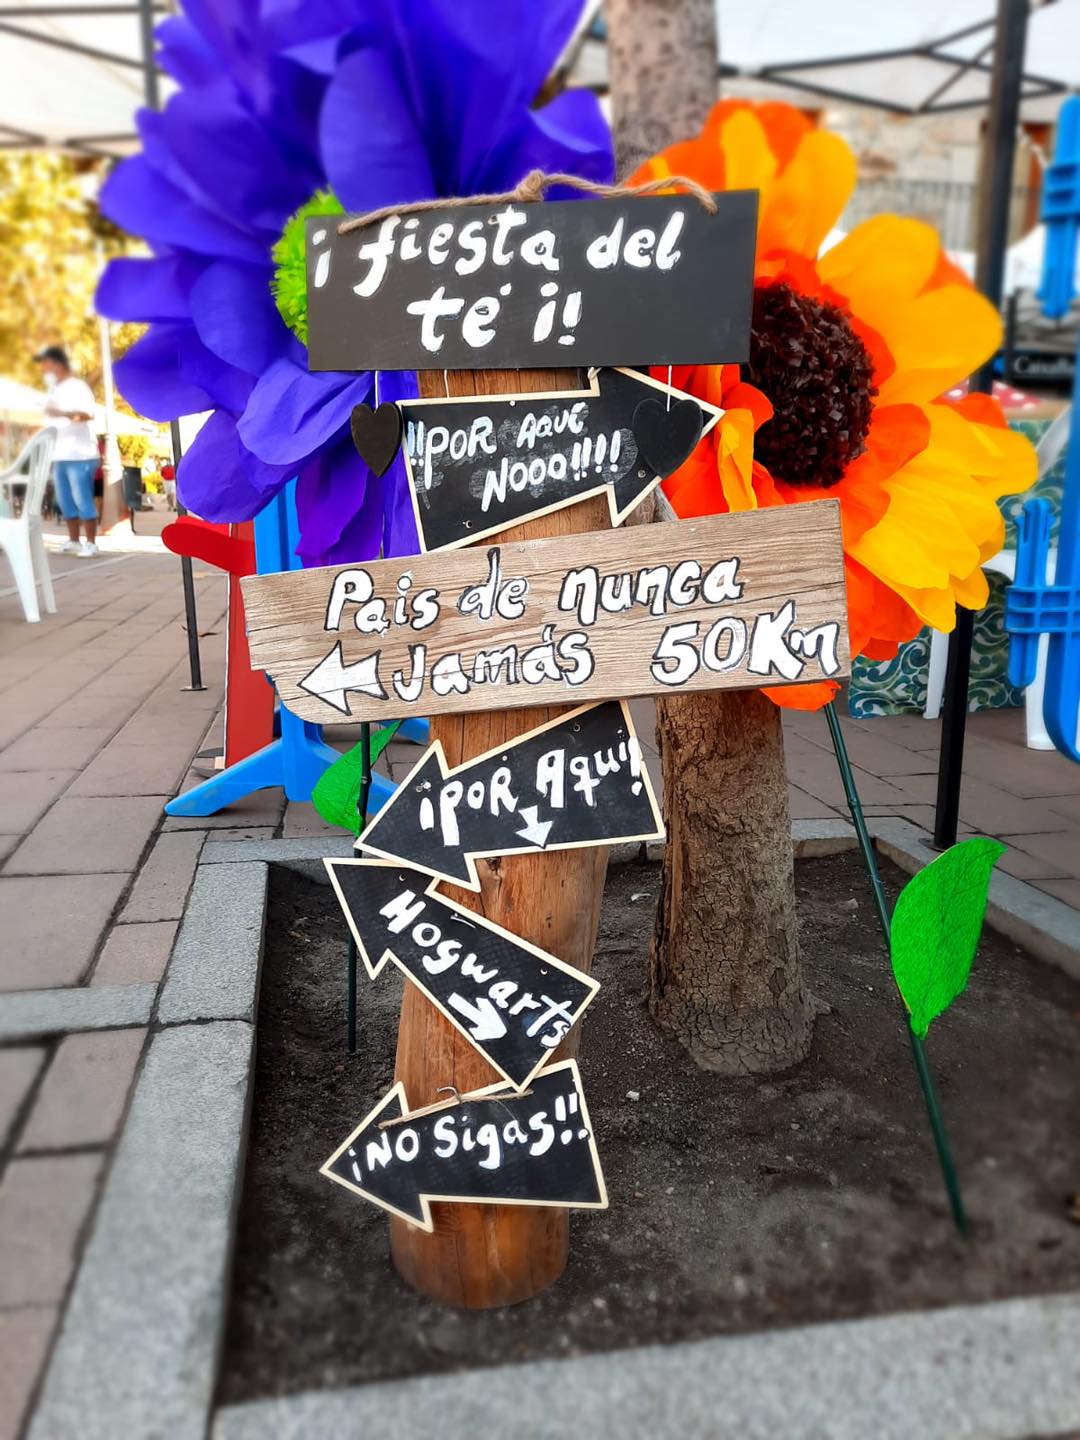 ¡fiesta del
té ¡!
!!POR AQUÉ
NOOO!!!!
Pais de nunca
Jamás 50Km
¡POR AquI!
Hogwarts
¡NO Sigas!!